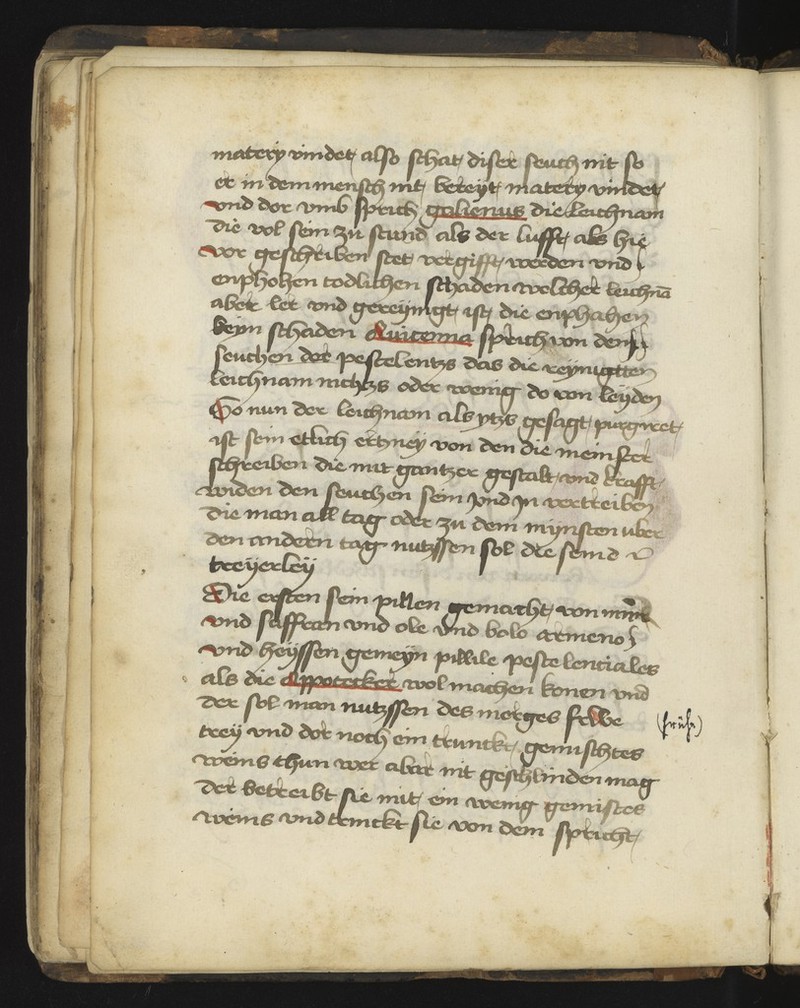 matery vindet also schat diser seuch nit so
er in dem mensch nit bereyt matery vindet
vnd dor vmb sprich galienus die leichnam
die vol sein zu stund als der lufft als hie
vor geschriben stet vergifft werden vnd
enphohen todlichen schaden welcher leichnā
aber ler vnd gereynigt ist die enphahen
keyn schaden Auicenna sprich von den
seuchen der pestelentzs das die reynigtten
leichnam nichtzs oder wenig do von leyden
So nun der leichnam als ytzs gesagt purgiret
ist sein etlich ertzney von den die meinster
schreiben die mit gantzer gestalt vnd krafft
widen den seuchen sein vnd in vertreiben
die man all tag oder zu dem mynsten uber
den andern tag nutzssen sol die seind
treyerley
Die ersten sein pillen gemacht von
vnd saffran vnd ole vnd bolo armeno
vnd heyssen gemeyn pillile pestelenciales
als die Appotecker wol machen konen vnd
der sol man nutzssen des morges frwe
(früh)
trey vnd dor noch ein trunckt gemischtes
weins thun wer aber nit geschlinden mag
der betreibt sie mit ein wenig gemistes
weins vnd trinckt sie von dem spricht